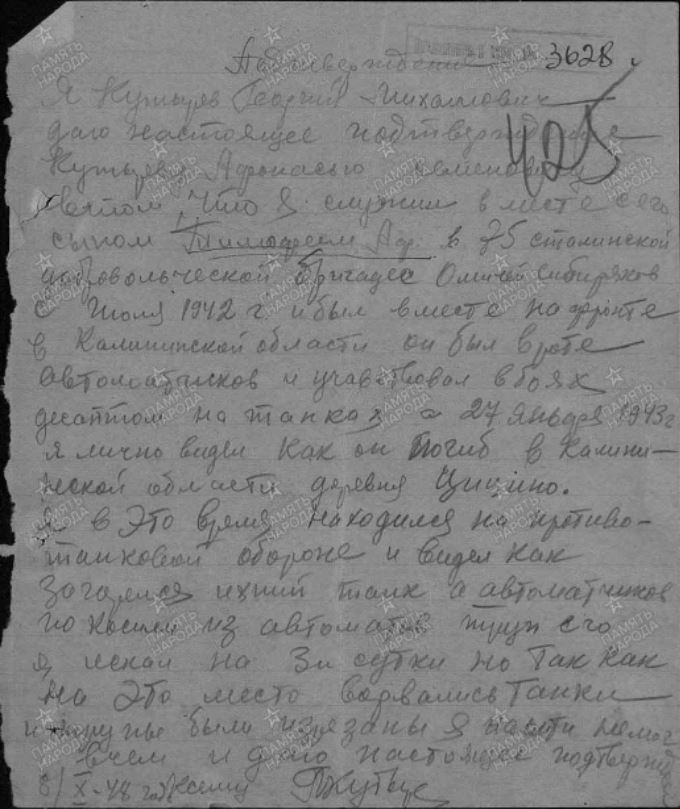 Подтверждение 3628
Я Кутырев Георгий Михайлович
даю настоящее подтверждение
425
Кутыреву Афонасью Семеновичу
в том что я служил вместе с его
сыном Тимофеем Аф. в 75 сталинской
добровольческой бригаде Омичей Сибиряков
с Июля 1942 г и был вместе на фронте
в Калининской области он был в роте
автоматчиков и учавствовал в боях
десантом на танках а 27 января 1943 г
я лично видел как он погиб в Калини-
нской области деревня Цицино.
Я в это время находился на противо-
танковой обороне и видел как
загорелся ихний танк а автоматчиков
покосили из автоматов труп его
я искал на 3и сутки но так как
на это место ворвались танки
и трупы были изрезаны я найти не мог
в чем и даю настоящее подтвержд
8/X-48 г